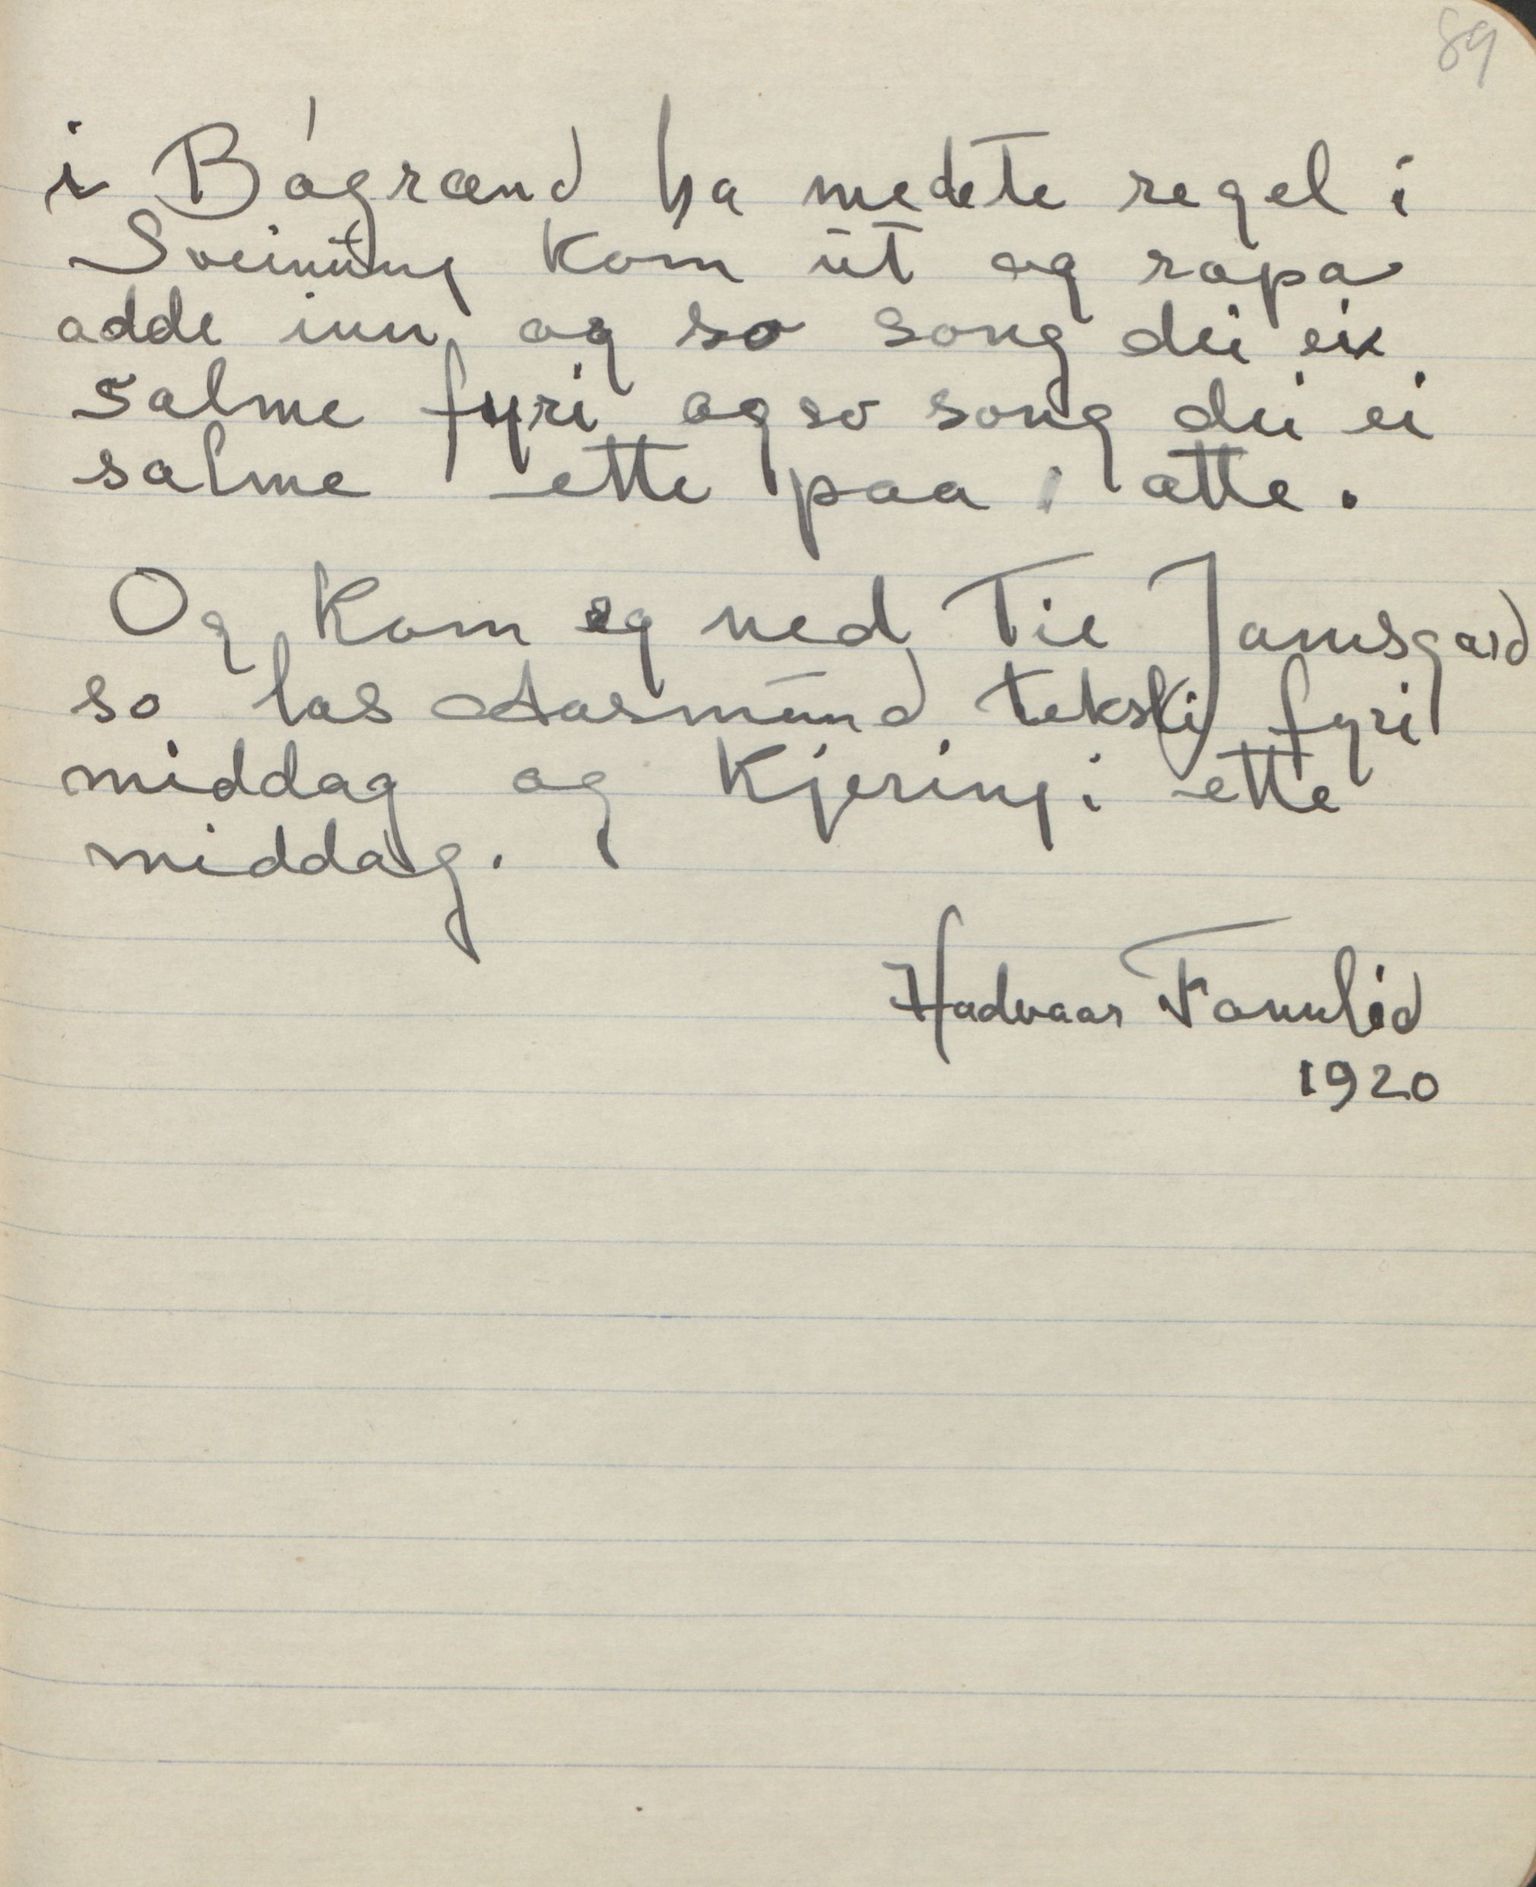 89
i Bógrænd ha medete regel i
Sveinung kom út og ropa
adde inn og so song dei ei
salme fyri og so song dei ei
salme ette paa atte.
Og kom eg ned Tie Jamsgard
so las Aasmund teksti fyri
middag og Kjeringi ette
middag.
Hadvaar Fonnlid
1920